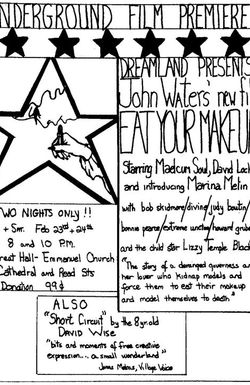 UNDERGROUND FILM PREMIERE
DREAMLAND PRESENTS
John Waters' new f
EAT YOUR MAKEUP
Starring Maelcum Soul, David Loch
and introducing Marina Melin
with bob skidmore/divine/judy boutin/
bonnie pearce/extreme unction/howard grube
and the child star Lizzy Temple Black
"The story of a deranged governess an
her lover who kidnap models and
force them to eat their makeup
and model themselves to death."
TWO NIGHTS ONLY!!
+ Sun. Feb 23rd + 24th
8 and 10 P.M.
rest Hall- Emmanuel Church
Cathedral and Read Sts
Donation 99¢
ALSO
"Short Circuit" by the 8yr.old
DAVID WISE
"bits and moments of free creative
expression... a small wonderland"
Jonas Mekas, Village Voice